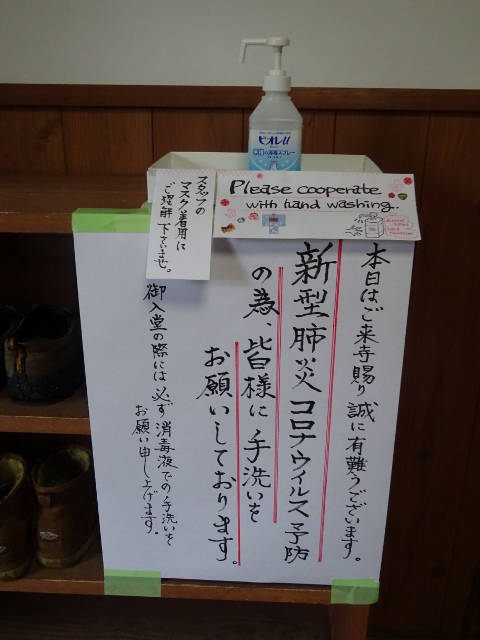 ビオレu
Please cooperate
with hand washing.
スタッフの
マスク着用に
ご理解下さいませ。
本日はご来寺賜り誠に有難うございます。
新型肺炎コロナウイルス予防
の為、皆様に手洗いを
お願いしております。
御入堂の際には必ず消毒液での手洗いを
お願い申し上げます。